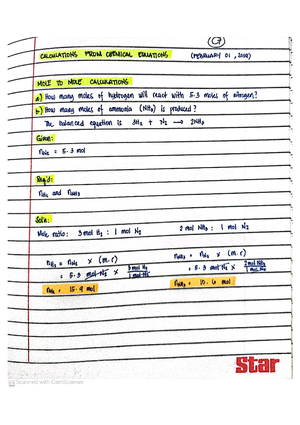 CALCULATIONS FROM CHEMICAL EQUATIONS
MOLE TO MOLE CALCULATIONS
a) How many moles of hydrogen will react with 5.3 moles of nitrogen?
b) How many moles of ammonia (NH₃) is produced?
The balanced equation is 3H₂ + N₂ → 2NH₃
Given:
nN₂ = 5.3 mol
Req'd:
nH₂ and nNH₃
Soln:
Mole ratio: 3 mol H₂ : 1 mol N₂ 2 mol NH₃ : 1 mol N₂
nH₂ = nN₂ × (m.r) nNH₃ = nN₂ × (m.r)
= 5.3 mol N₂ × 3 mol H₂ / 1 mol N₂ = 5.3 mol N₂ × 2 mol NH₃ / 1 mol N₂
= 15.9 mol nNH₃ = 10.6 mol
Star
Scanned with CamScanner